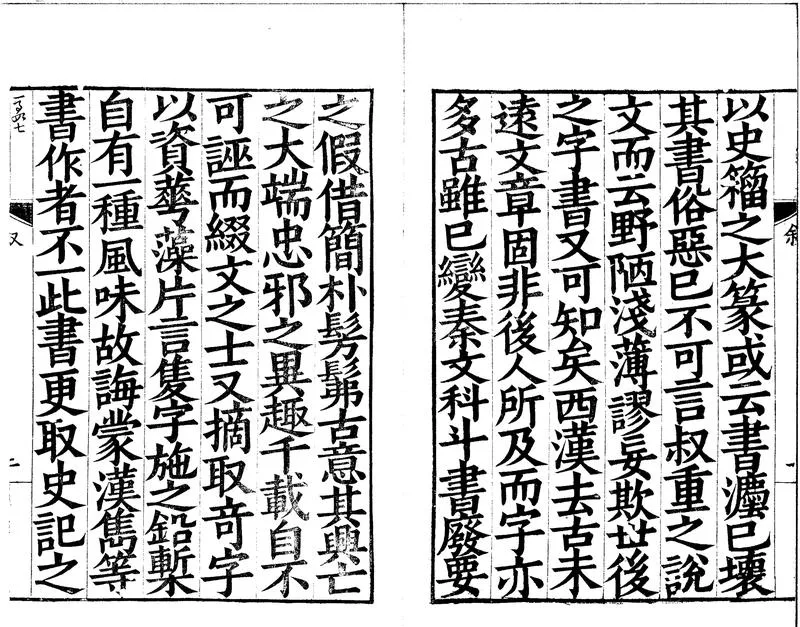 以史籀之大篆或云書灋已壞
其書俗惡已不可言叔重之說
文而云野陋淺薄謬妄欺世後
之字書又可知矣西漢去古未
遠文章固非後人所及而字亦
多古雖已變秦文科斗書廢要
之假借簡朴髣髴古意其興亡
之大端忠邪之異趣千載自不
可誣而綴文之士又摘取竒字
以資華藻片言隻字施之鉛槧
自有一種風味故誨蒙漢雋等
書作者不一此書更取史記之